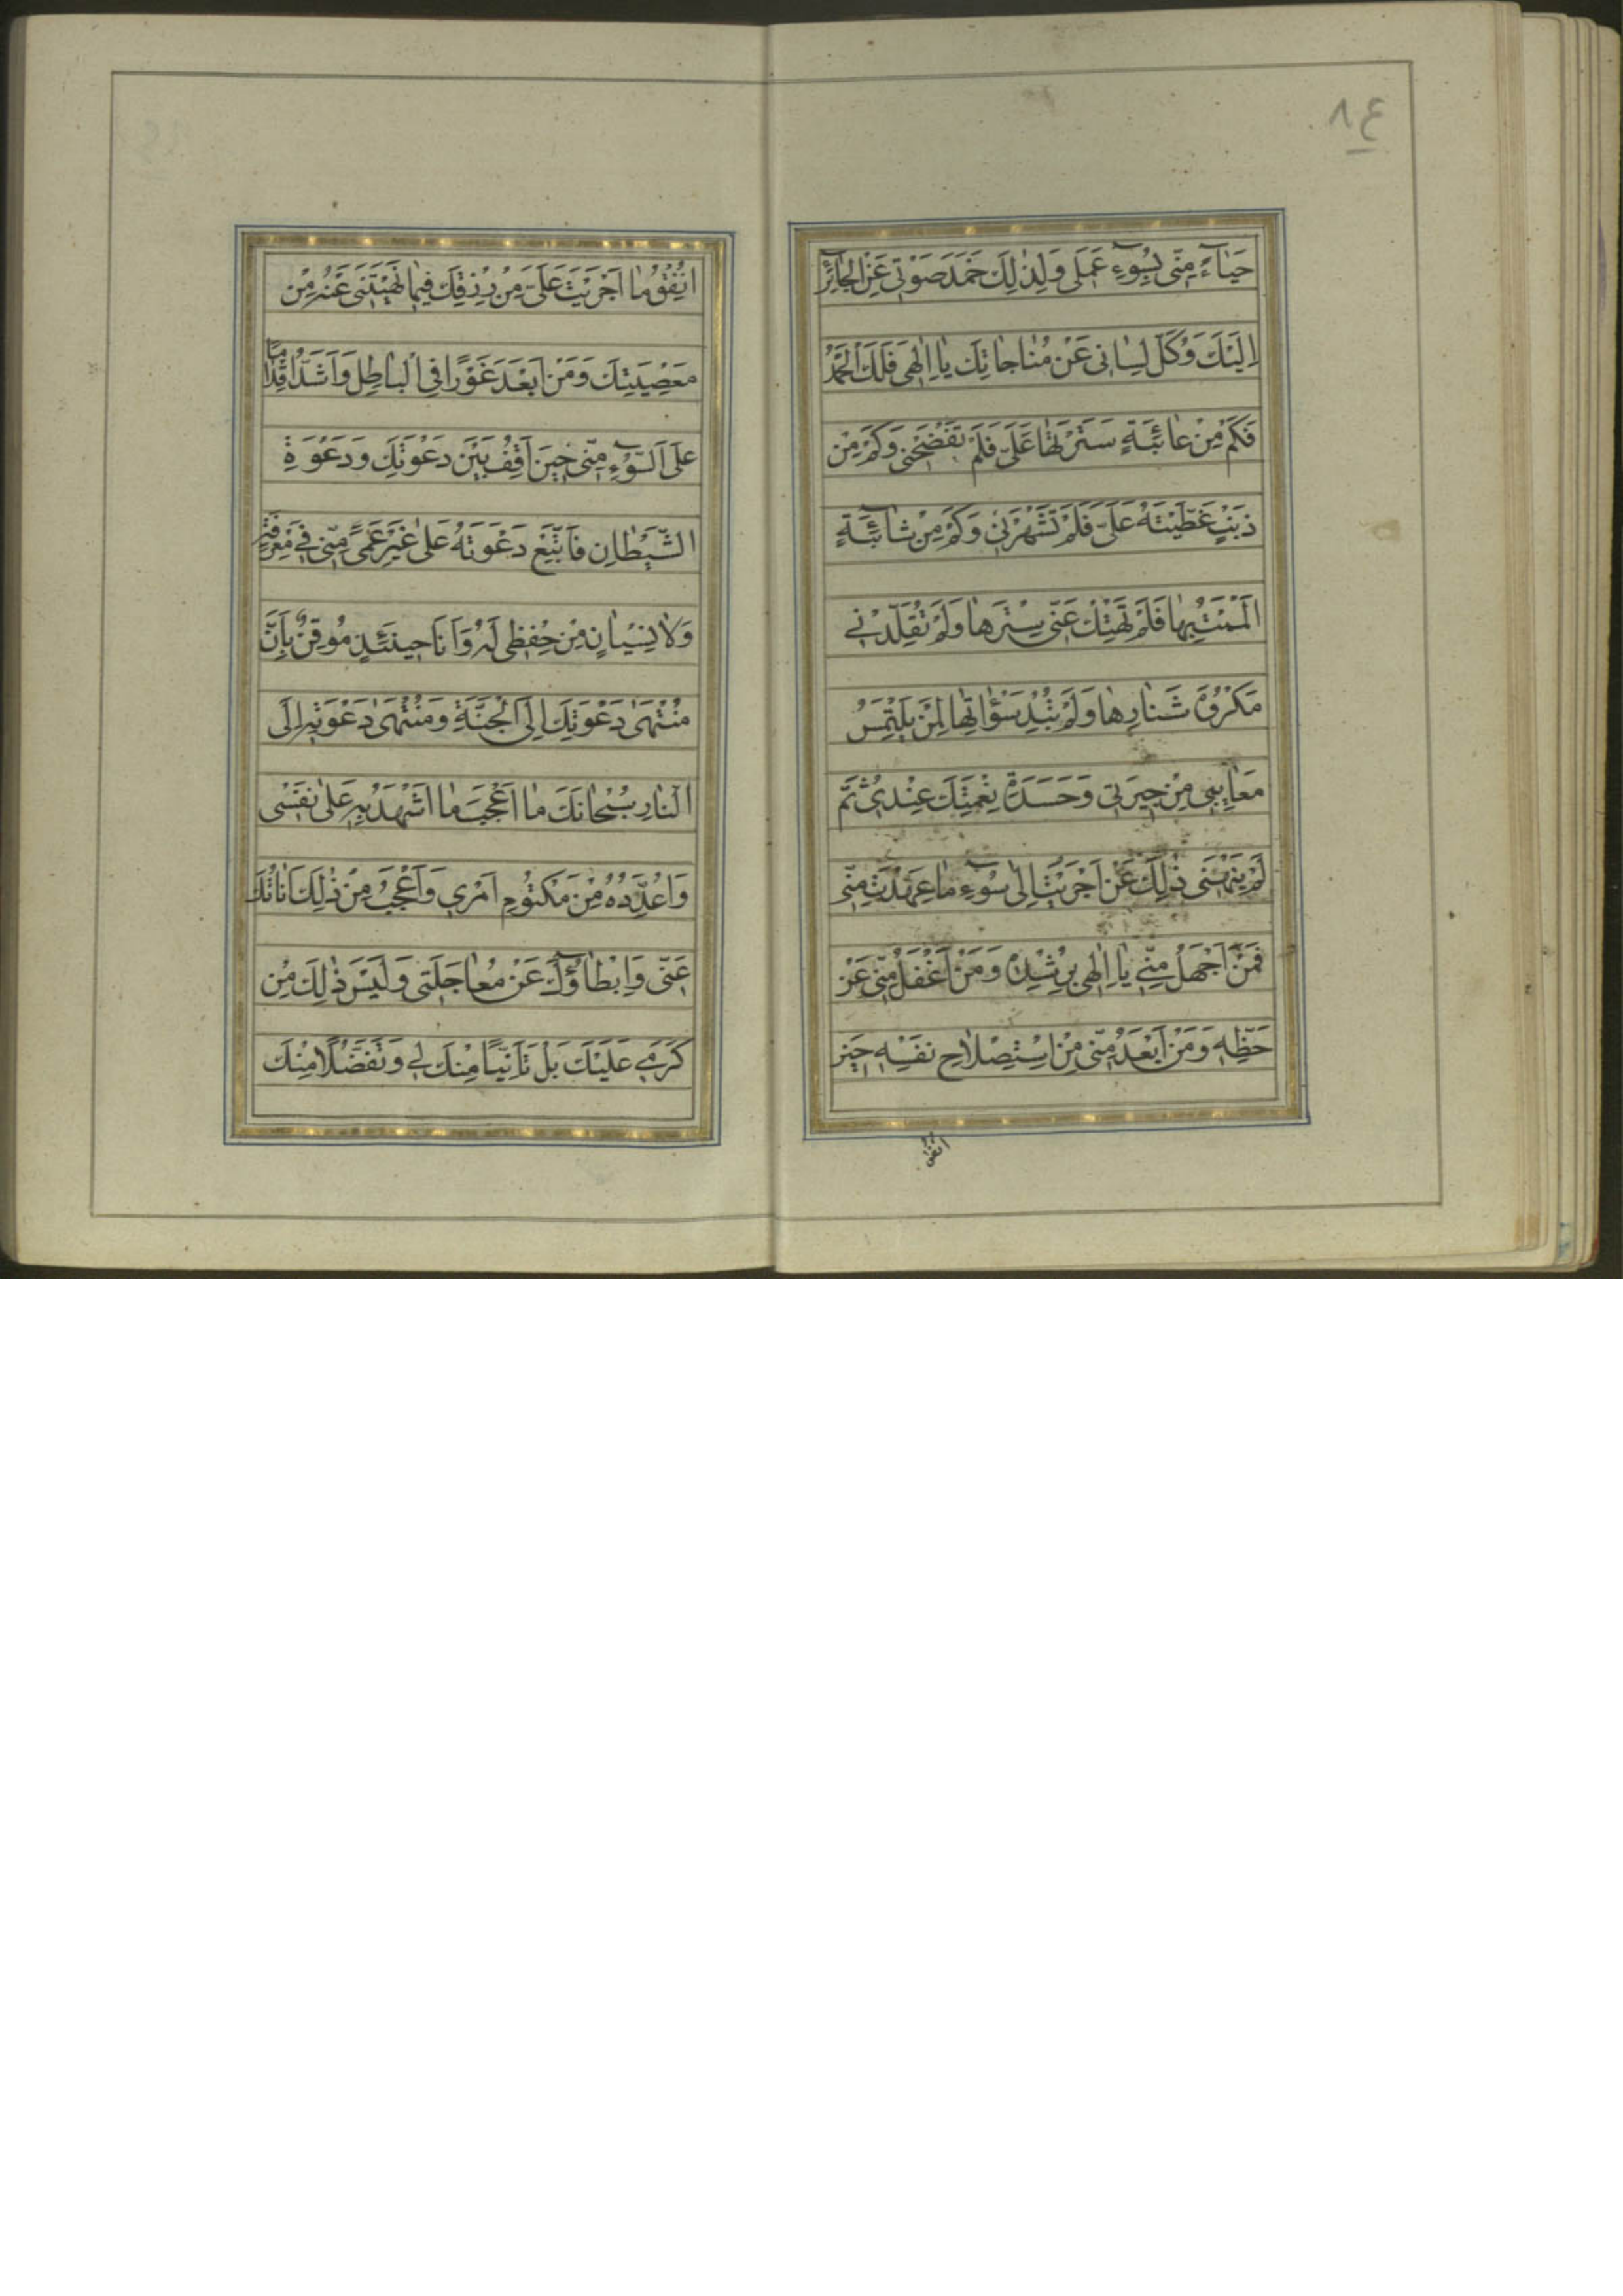 ٨٤
حَيٰاۤءً مِنّى بِسُوۤءِ عَمَلى وَلِذٰلِكَ خَمَدَ صَوْتى عَنِ الْجَاۤئِرِ
اِلَيْكَ وَكَلَّ لِسٰانى عَنْ مُنٰاجٰاتِكَ يٰا اِلٰهى فَلَكَ الْحَمْدُ
فَكَمْ مِنْ عٰاۤئِبَةٍ سَتَرْتَهٰا عَلَىَّ فَلَمْ تَفْضَحْنى وَكَمْ مِنْ
ذَنْبٍ غَطَّيْتَهُ عَلَىَّ فَلَمْ تَشْهَرْنى وَكَمْ مِنْ شٰاۤئِبَةٍ
اَلْمَمْتُ بِهٰا فَلَمْ تَهْتِكْ عَنّى سِتْرَهٰا وَلَمْ تُقَلِّدْنى
مَكْرُوهَ شَنٰارِهٰا وَلَمْ تُبْدِ سَوْاٰتِهٰا لِمَنْ يَلْتَمِسُ
مَعٰاۤيِبى مِنْ جيرَتى وَحَسَدَةِ نِعْمَتِكَ عِنْدى ثُمَّ
لَمْ يَنْهَنى ذٰلِكَ عَنْ اَجْرَيْتُ اِلىٰ سُوۤءِ مٰا عَهِدْتَ مِنّى
فَمَنْ اَجْهَلُ مِنّى يٰا اِلٰهى بِرُشْدِهِ وَمَنْ اَغْفَلُ مِنّى عَنْ
حَظِّهِ وَمَنْ اَبْعَدُ مِنّى مِنْ اسْتِصْلاٰحِ نَفْسِهِ حينَ
انفق
اُنْفِقُ مٰا اَجْرَيْتَ عَلَىَّ مِنْ رِزْقِكَ فيمٰا نَهَيْتَنى عَنْهُ مِنْ
مَعْصِيَتِكَ وَمَنْ اَبْعَدُ غَوْرًا فِى الْبٰاطِلِ وَاَشَدُّ اِقْدٰامًا
عَلَى السُّوۤءِ مِنّى حينَ اَقِفُ بَيْنَ دَعْوَتِكَ وَدَعْوَةِ
الشَّيْطٰانِ فَاَتَّبِعُ دَعْوَتَهُ عَلىٰ غَيْرِ عَمًى مِنّى فى مَعْرِفَتِهِ
وَلاٰ نِسْيٰانٍ مِنْ حِفْظى لَهُ وَاَنَا حينَئِذٍ مُوقِنٌ بِاَنَّ
مُنْتَهىٰ دَعْوَتِكَ اِلَى الْجَنَّةِ وَمُنْتَهىٰ دَعْوَتِهِ اِلَى
النّٰارِ سُبْحٰانَكَ مٰا اَعْجَبَ مٰا اَشْهَدُ بِهِ عَلىٰ نَفْسى
وَاُعَدِّدُهُ مِنْ مَكْتُومِ اَمْرى وَاَعْجَبُ مِنْ ذٰلِكَ اَنٰاتُكَ
عَنّى وَاِبْطٰاۤؤُكَ عَنْ مُعٰاجَلَتى وَلَيْسَ ذٰلِكَ مِنْ
كَرَمى عَلَيْكَ بَلْ تَاَنِّيًا مِنْكَ لى وَتَفَضُّلًا مِنْكَ